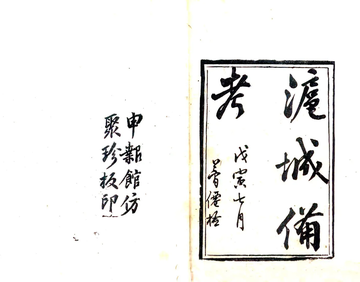 滬城備
考
戊寅七月
申報館仿
聚珍板印